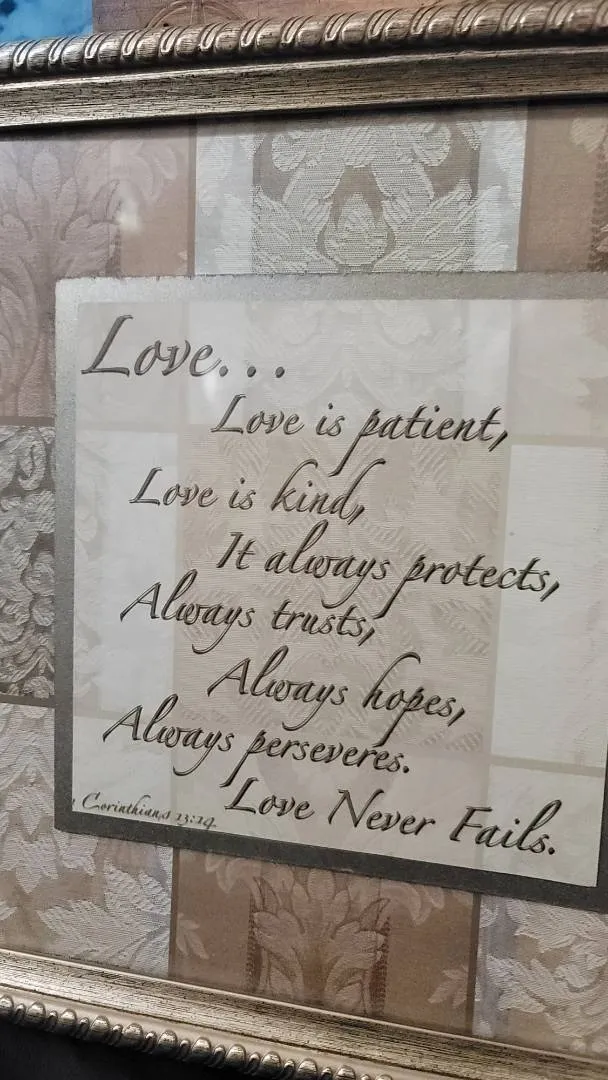 Love...
Love is patient,
Love is kind,
It always protects,
Always trusts,
Always hopes,
Always perseveres.
Love Never Fails.
1 Corinthians 13:14